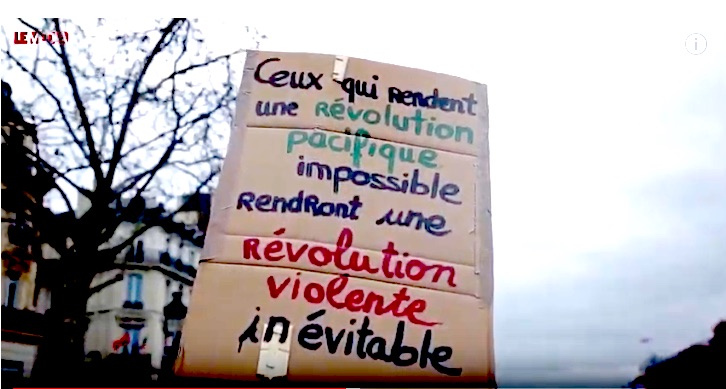 Ceux qui rendent
une révolution
pacifique
impossible
rendront une
révolution
violente
inévitable